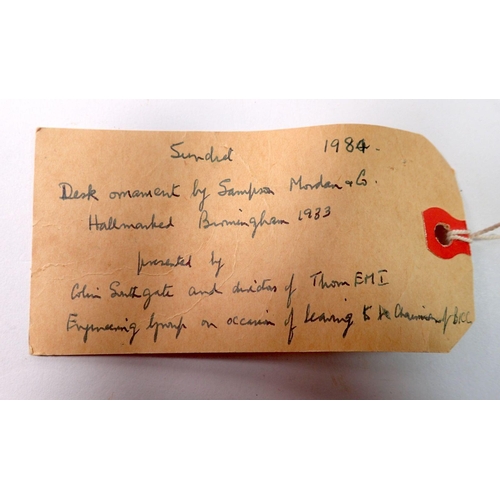 Sundial 1984.
Desk ornament by Sampson Mordan & Co.
Hallmarked Birmingham 1933
presented by
Colin Southgate and directors of Thorn EMI
Engineering Group on occasion of leaving to be Chairman of BICC